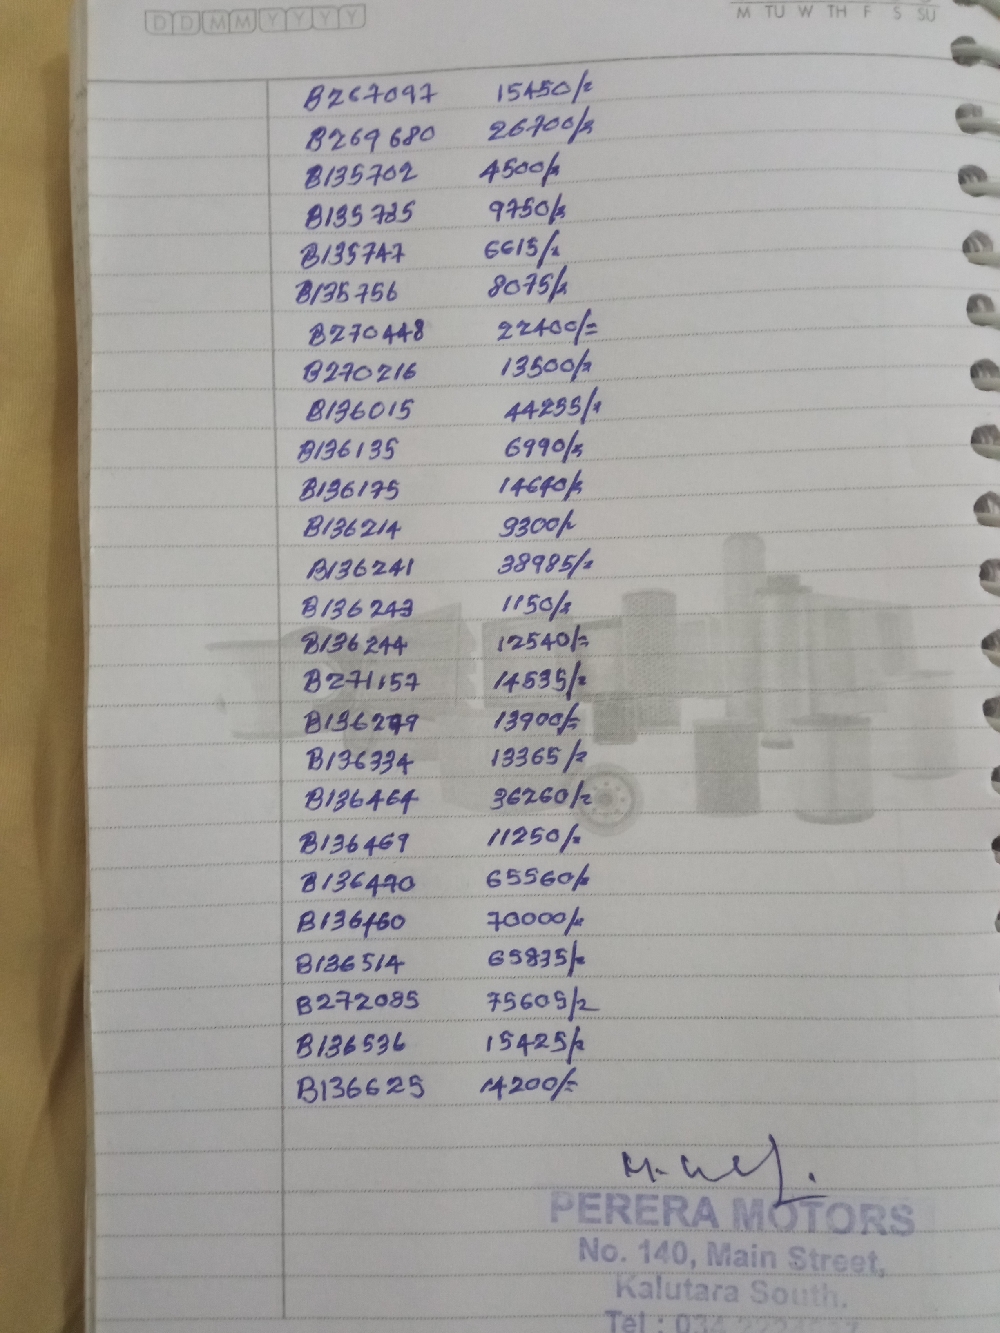 DDMMYYYY
M TU W TH F S SU
B267097 15450/=
B269680 26700/=
B135702 4500/=
B135735 9750/=
B135747 6615/=
B135756 8075/=
B270448 22400/=
B270216 13500/=
B136015 44255/=
B136135 6990/=
B136175 14640/=
B136214 9300/=
B136241 38985/=
B136243 1150/=
B136244 12540/=
B271157 14535/=
B136279 13900/=
B136334 13365/=
B136464 36260/=
B136469 11250/=
B136470 65560/=
B136460 70000/=
B136514 65835/=
B272085 75605/=
B136536 15425/=
B136625 14200/=
PERERA MOTORS
No. 140, Main Street,
Kalutara South.
Tel : 034